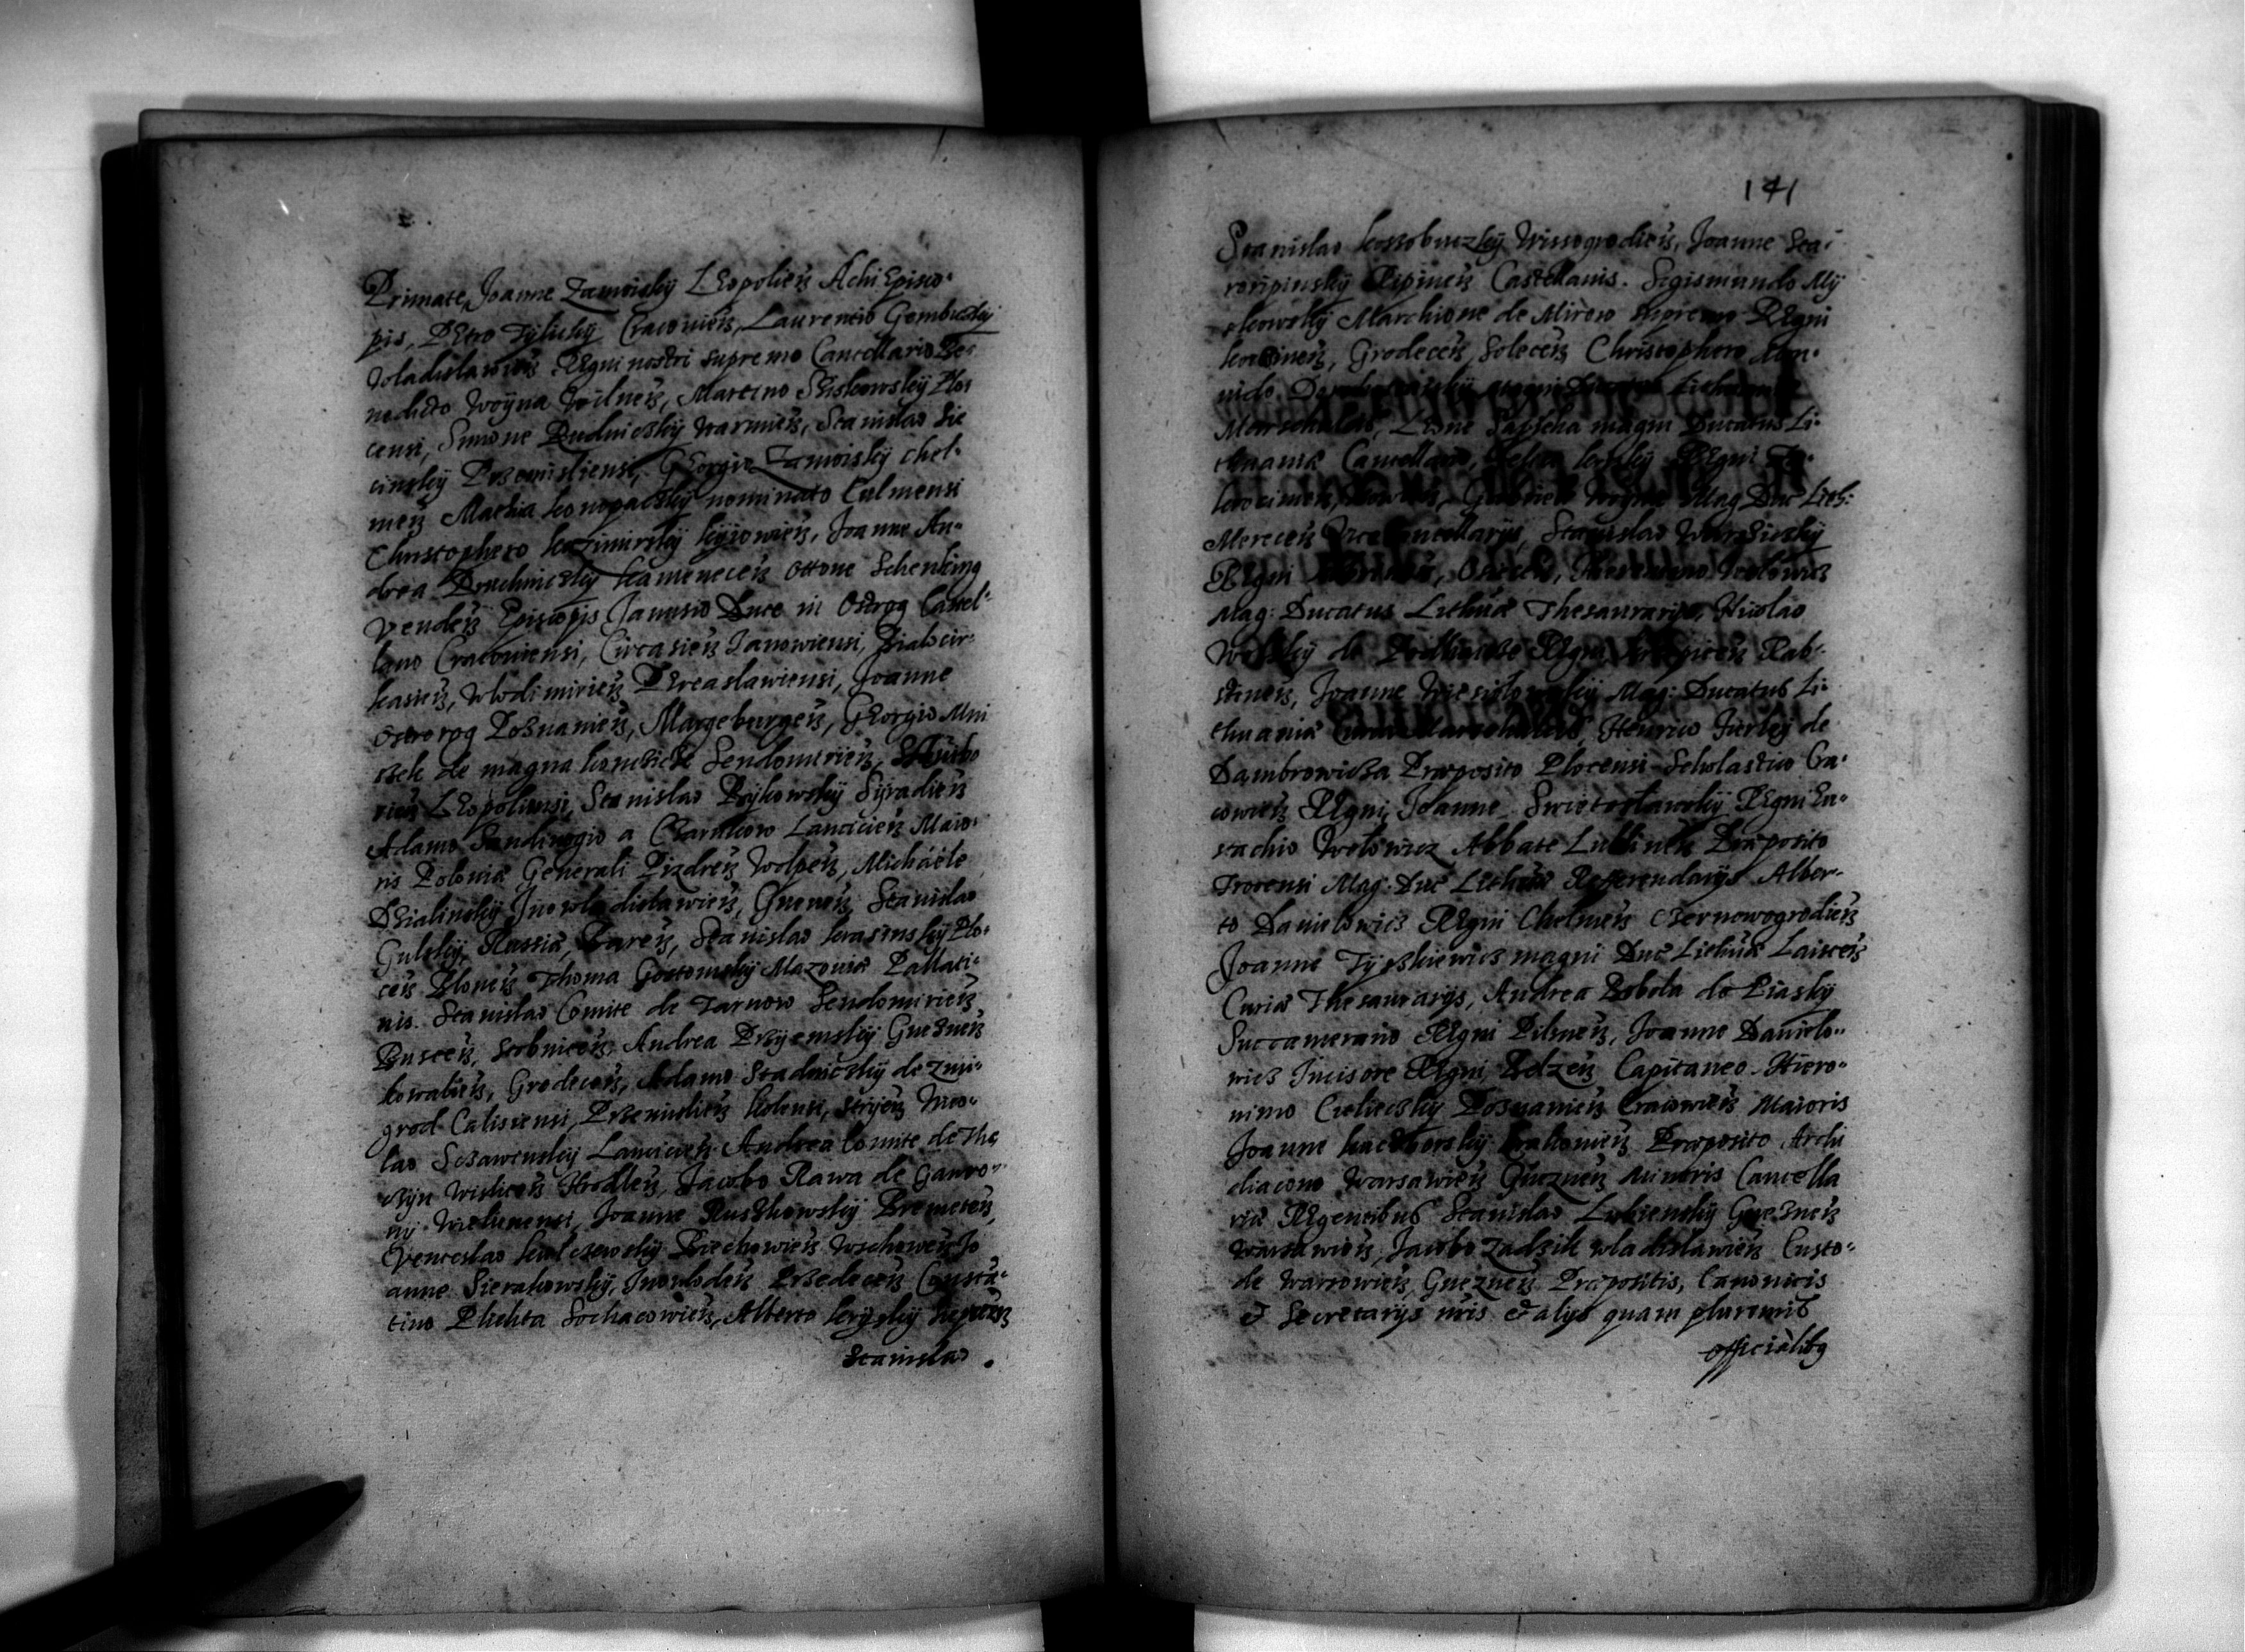 Primate, Joanne Zamoisky Leopolien̄ Achi Episco-
pis, Petro Tylicky Cracovien̄, Laurentio Gembicky
Wladislavien̄ Regni nostri supremo Cancellario Be-
nedicto Woyna Vilnen̄, Martino Sziskowsky Plo-
censi, Simone Rudnicky Warmien̄, Stanislao Sie
cinsky Præmisliensi, Georgio Zamoisky chel-
men̄ Mathia Konopacky nominato Culmensi
Christophero Kazimirsky Kyiovien̄, Joanne An-
drea Pruchnicky Kamenecen̄ Ottone Schenking
Venden̄ Episcopis Janusio Duce in Ostrog Castel-
lano Cracoviensi, Circasien̄ Janowiensi, Bialocir-
kasien̄, Wlodimirien̄ Pereaslaviensi, Joanne
Ostrorog Posnanien̄, Margeburgen̄, Georgio Mni
szek de magna Koncicze Sendomirien̄, Sambo
rien̄ Leopoliensi, Stanislao Bykowsky Syradien̄
Adamo Sandivogio a Czarnkow Lancicien̄ Maio-
ris Poloniæ Generali Pizdren̄ Wolpen̄, Michaele
Dzialinsky Inowladislavien̄, Gneven̄ Stanislao
Gulsky, Russiæ, Baren̄, Stanislao Krasinsky Plo-
cen̄ Plonen̄ Thoma Gostomsky Mazoviæ Pallati-
nis. Stanislao Comite de Tarnow Sendomirien̄
Buscen̄, Stobnicen̄ Andrea Przyemsky Gneznen̄
Kowalien̄, Grodecen̄, Adamo Stadnicky de Zmi-
grod Calisiensi, Przemislien̄ Kolensi, Stryen̄ Nico-
lao Sczawinsky Lancicien̄ Andrea Comite de The
czyn Wislicen̄ Hrodlen̄, Jacobo Rawa de Gawro-
ny Wielunensi, Joanne Ruszkowsky Bremeten̄,
Venceslao Kielczewsky Biechowien̄ Wschowen̄ Jo
anne Sierakowsky, Inowloden̄ Przedecen̄ Consta-
tino Plichta Sochacowien̄, Alberto Krysky
Stanislao
141
Stanislao Kossobuczky Wissogrodien̄, Joanne Sta-
roripinsky Ripinen̄ Castellanis. Sigismundo My
skowsky Marchione de Mirow supremo Regni
Korcinen̄, Grodecen̄, Solecen̄ Christophoro Mo-
nido Dorohostaisky magni Ducatus Lithuaniæ
Marschalcis, Leone Sapieha magni Ducatus Li-
thuaniæ Cancellario, Felice Krisky Regni
Gabriele Woyna Mag. Duc̄ Lith:
Merecen̄ Vice Cancellarys, Stanislao Warsicky
Regni Hieronimo Wolowicz
Mag: Ducatus Lithūæ Thesaurarys, Nicolao
Wolsky de Podhaicze Regni Krzepicen̄ Rab-
stinen̄, Joanne Wiesiolowsky Mag: Ducatus Li-
thuaniæ Curiæ Marschalcis, Henrico Firley de
Dambrowicza Præposito Plocensi Scholastico Cra-
covien̄ Regni, Joanne Swietoslawsky Regni Eu-
stachio Wolowicz Abbate Lublinen̄ Præposito
Trocensi Mag: Duc̄ Lithūæ Refferendarys Alber-
to Danielowicz Regni Chelmen̄ Czernowogrodien̄
Joanne Tyszkiewicz magni Duc̄ Lithūæ Laiscen̄
Curiæ Thesaurarys, Andrea Bobola de Piasky
Succamerario Regni Pilznen̄, Joanne Danielo-
wicz Incisore Regni Belzen̄ Capitaneo Hiero-
nimo Cielecky Posnanien̄ Cracovien̄ Maioris
Joanne Kuczborsky Præposito Archi
diacono Warsavien̄ Gneznen̄ Minoris Cancella
riæ Regentibus Stanislao Lubiensky Gneznen̄
Warsavien̄, Jacobo Zadzik Wladislavien̄ Custo-
de Warsovien̄ Gneznen̄ Præpositis, Canonicis
& Secretarys nr̄is & alys quam plurimis
officialibg